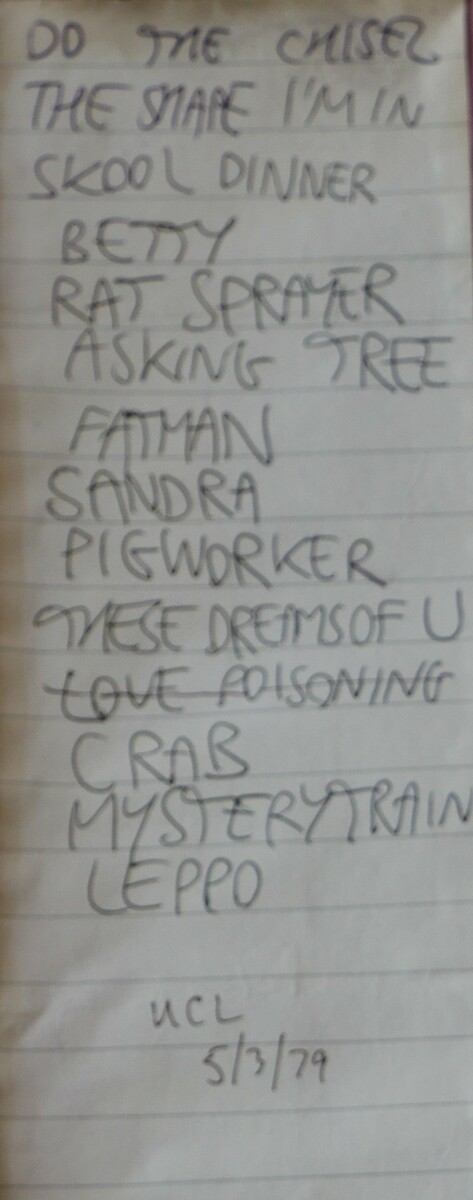 DO THE CHISEL
THE SHAPE I'M IN
SKOOL DINNER
BETTY
RAT SPRAYER
ASKING TREE
FATMAN
SANDRA
PIGWORKER
THESE DREAMS OF U
LOVE POISONING
CRAB
MYSTERYTRAIN
LEPPO
UCL
5/3/79